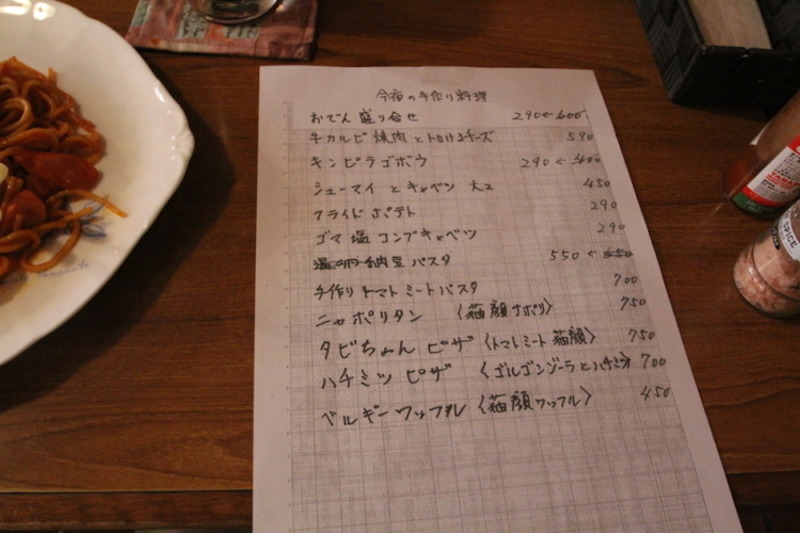 今夜の手作り料理
おでん 盛り合せ 290 ← 600
牛カルビ 焼肉 と トロけるチーズ 590
キンピラゴボウ 290 ← 400
シューマイ と キャベツ 大2 450
フライド ポテト 290
ゴマ 塩 コンブキャベツ 290
納豆 パスタ 550 ← 650
手作り トマト ミートパスタ 700
ニャポリタン 〈猫顔ナポリ〉 750
タビちゃん ピザ 〈トマトミート 猫顔〉 750
ハチミツ ピザ 〈ゴルゴンゾーラとハチミツ〉 700
ベルギーワッフル 〈猫顔ワッフル〉 450
SPICE